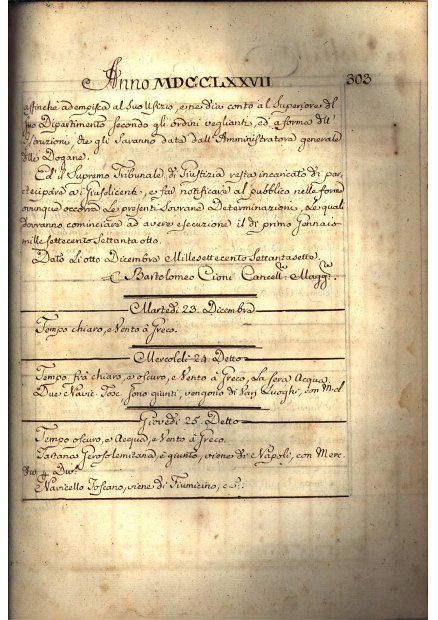 Anno MDCCLXXVII
303
affinche adempisca al Suo Ufizio, e ne dia conto al Superiore del
suo Dipartimento secondo gli ordini veglianti, ed a forma dell'
Istruzioni, che gli saranno date dall'Amministratore generale
delle Dogane.
Ed il Supremo Tribunale di Giustizia resta incaricato di par,
tecipare a i Giusdicenti, e far notificare al pubblico nelle forme
ovunque occorra Le presenti Sovrane Determinazioni, Le quali
dovranno cominciare ad avere esecuzione il dì primo Gennaio
mille settecento Settanta otto.
Dato Li otto Dicembre Millesettecento Settantasette.
Bartolomeo Cioni Cancell: Magg:
Martedì 23. Dicembre
Tempo chiaro, e Vento à Greco.
Mercoledì 24. Detto
Tempo frà chiaro, e oscuro, e Vento à Greco, La sera Acqua.
Due Navit. Tosc. sono giunti, vengono di Varj Luoghi, con
Giovedì 25. Detto
Tempo oscuro, e Acqua, e Vento à Greco.
Tartana Gerosolimitana, è giunto, viene di Napoli, con Merc.
Navicello Toscano, viene di Fiumicino, e S: